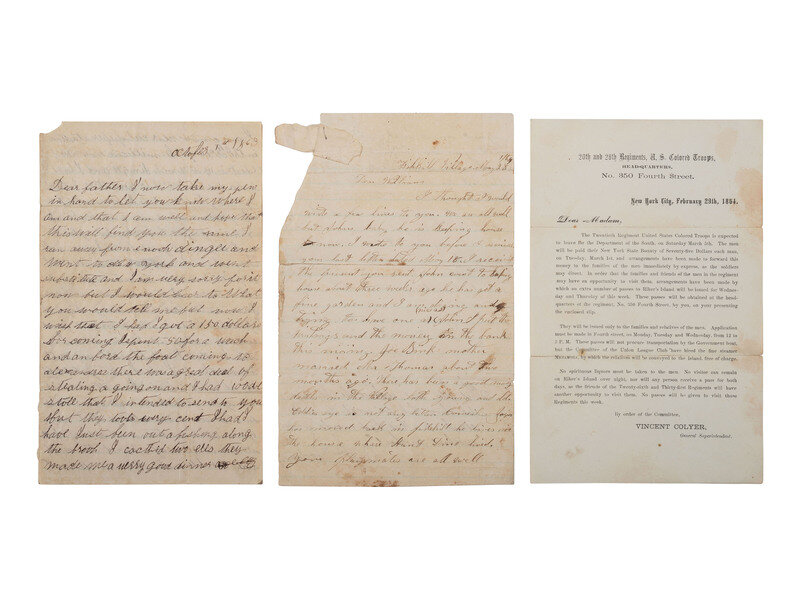 Dear father I now take my pen
in hand to let you know where I
am and that I am well and hope that
this will find you the same I
ran away from enoch dingee and
went to old york and went
substitute and I am very sorry for it
now but I would due to What
you would tole me but now I
wish that I had I got a 150 dollars
for coming I spent 50 for a wach
and an bord the boat coming to
alexandrea there was a great deal of
stealing a going on and I had
stole that I intended to send to you
that they took evry cent I had I
have Just been out a fishing along
the brook I cacth'd two eles they
made me a verry good dinner
Fishkill Village May 23
I thought I would
write a few lines to you. We are all well
but John's baby he is keeping house
now. I wrote to you before I received
your last letter
the present you sent John went to keeping
house about three weeks ago he has got a
fine garden and I am
this time one
and the money in the bank
this morning Joe Bush mother
married Mr thomas about two
months ago. There has been a good many
eye is not any better
has moved back in fishkill he lives in
the house where Aunt
your playmates are all well
20th and 26th Regiments, U. S. Colored Troops,
HEAD-QUARTERS,
No. 350 Fourth Street.
New York City, February 29th, 1864.
Dear Madam,
The Twentieth Regiment United States Colored Troops is expected
to leave for the Department of the South on Saturday March 5th. The men
will be paid their New York State Bounty of Seventy-five Dollars each man,
on Tuesday, March 1st, and arrangements have been made to forward this
money to the families of the men immediately by express, as the soldiers
may direct. In order that the families and friends of the men in the regiment
may have an opportunity to visit them, arrangements have been made by
which an extra number of passes to Riker's Island will be issued for Wednes-
day and Thursday of this week. These passes will be obtained at the head-
quarters of the regiment, No. 350 Fourth Street, by you, on your presenting
the enclosed slip.
They will be issued only to the families and relatives of the men. Application
must be made in Fourth street, on Monday, Tuesday and Wednesday, from 12 to
3 P. M. These passes will not procure transportation by the Government boat,
but the Committee of the Union League Club have hired the fine steamer
by which the relatives will be conveyed to the Island, free of charge.
No spirituous liquors must be taken to the men. No visitor can remain
on Riker's Island over night, nor will any person receive a pass for both
days, as the friends of the Twenty-sixth and Thirty-first Regiments will have
another opportunity on next Tuesday. No passes will be given to visit those
Regiments this week.
By order of the Committee,
VINCENT COLYER,
General Superintendent.